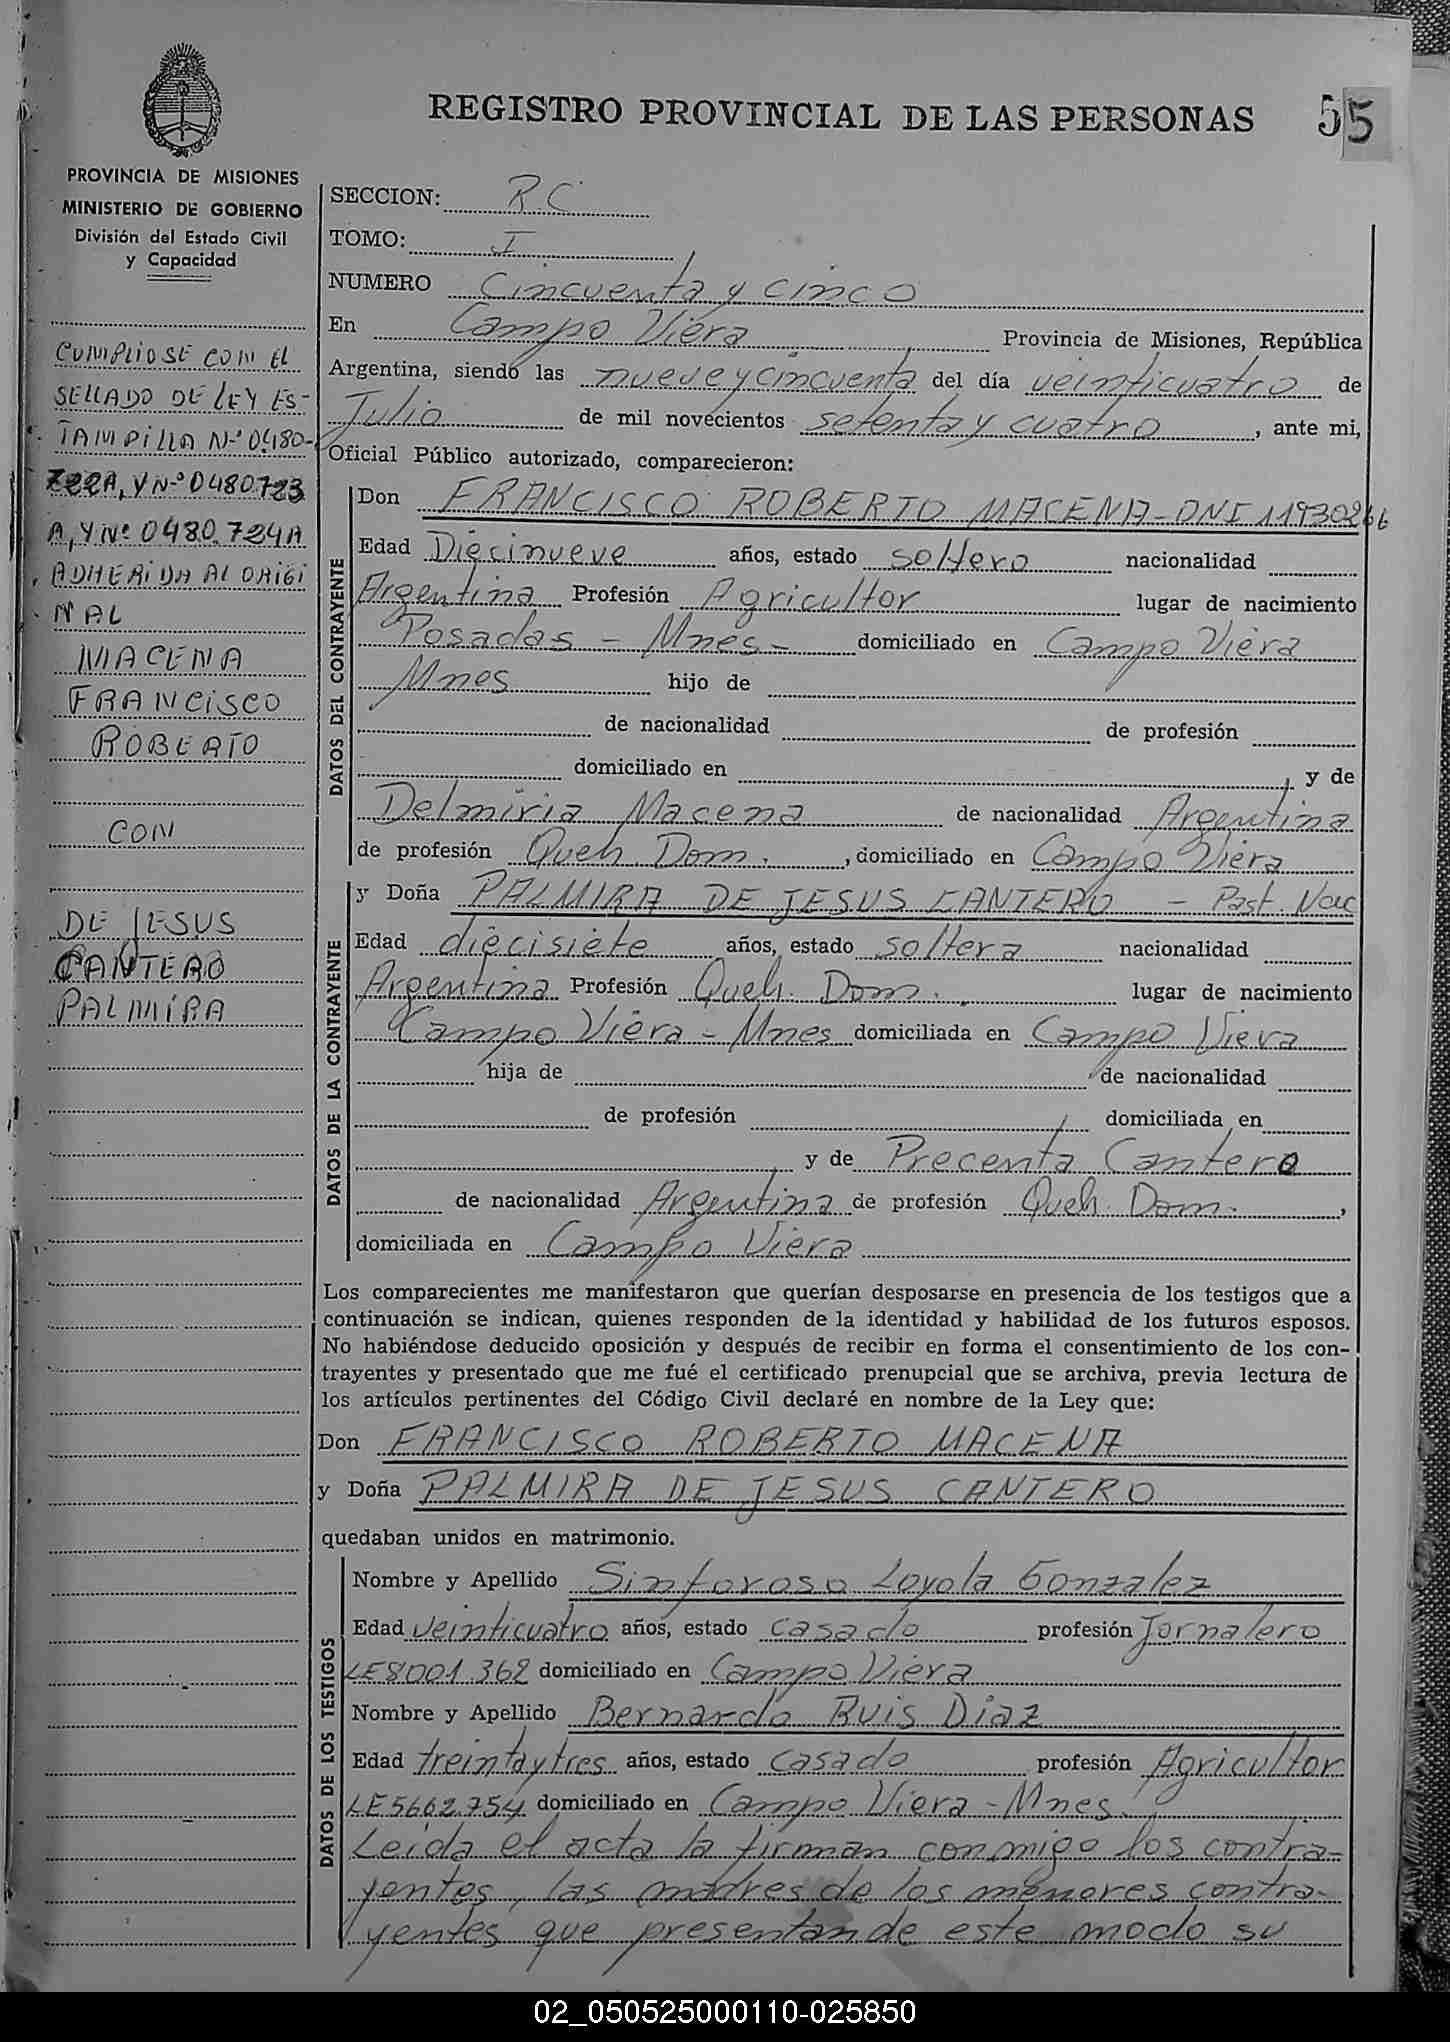 REGISTRO PROVINCIAL DE LAS PERSONAS
55
PROVINCIA DE MISIONES
MINISTERIO DE GOBIERNO
División del Estado Civil
y Capacidad
CUMPLIOSE CON EL
SELLADO DE LEY ES-
TAMPILLA N-º 0480-
722A, Y N-º 0480723
A, Y Nº 0480.724A
ADHERIDA AL ORIGI
NAL
MACENA
FRANCISCO
ROBERTO
CON
DE JESUS
CANTERO
PALMIRA
SECCION: R.C
TOMO: I
NUMERO Cincuenta y cinco
En Campo Viera Provincia de Misiones, República
Argentina, siendo las nueve y cincuenta del día veinticuatro de
Julio de mil novecientos setenta y cuatro, ante mi,
Oficial Público autorizado, comparecieron:
DATOS DEL CONTRAYENTE
Don FRANCISCO ROBERTO MACENA-DNI 11930266
Edad Diecinueve años, estado soltero nacionalidad
Argentina Profesión Agricultor lugar de nacimiento
Posadas - Mnes- domiciliado en Campo Viera
Mnes hijo de
de nacionalidad de profesión
domiciliado en y de
Delmiria Macena de nacionalidad Argentina
de profesión Queh. Dom., domiciliado en Campo Viera
DATOS DE LA CONTRAYENTE
y Doña PALMIRA DE JESUS CANTERO - Part. Nac
Edad diecisiete años, estado soltera nacionalidad
Argentina Profesión Queh. Dom. lugar de nacimiento
Campo Viera - Mnes domiciliada en Campo Viera
hija de de nacionalidad
de profesión domiciliada en
y de Precenta Cantero
de nacionalidad Argentina de profesión Queh. Dom.,
domiciliada en Campo Viera
Los comparecientes me manifestaron que querían desposarse en presencia de los testigos que a
continuación se indican, quienes responden de la identidad y habilidad de los futuros esposos.
No habiéndose deducido oposición y después de recibir en forma el consentimiento de los con-
trayentes y presentado que me fué el certificado prenupcial que se archiva, previa lectura de
los artículos pertinentes del Código Civil declaré en nombre de la Ley que:
Don FRANCISCO ROBERTO MACENA
y Doña PALMIRA DE JESUS CANTERO
quedaban unidos en matrimonio.
DATOS DE LOS TESTIGOS
Nombre y Apellido Sinforoso Loyola Gonzalez
Edad veinticuatro años, estado casado profesión Jornalero
LE8001.362 domiciliado en Campo Viera
Nombre y Apellido Bernardo Ruis Diaz
Edad treinta y tres años, estado casado profesión Agricultor
LE5662.754 domiciliado en Campo Viera - Mnes.
Leida el acta la firman conmigo los contra-
yentes, las madres de los menores contra-
yentes que presentan de este modo su
02_050525000110-025850